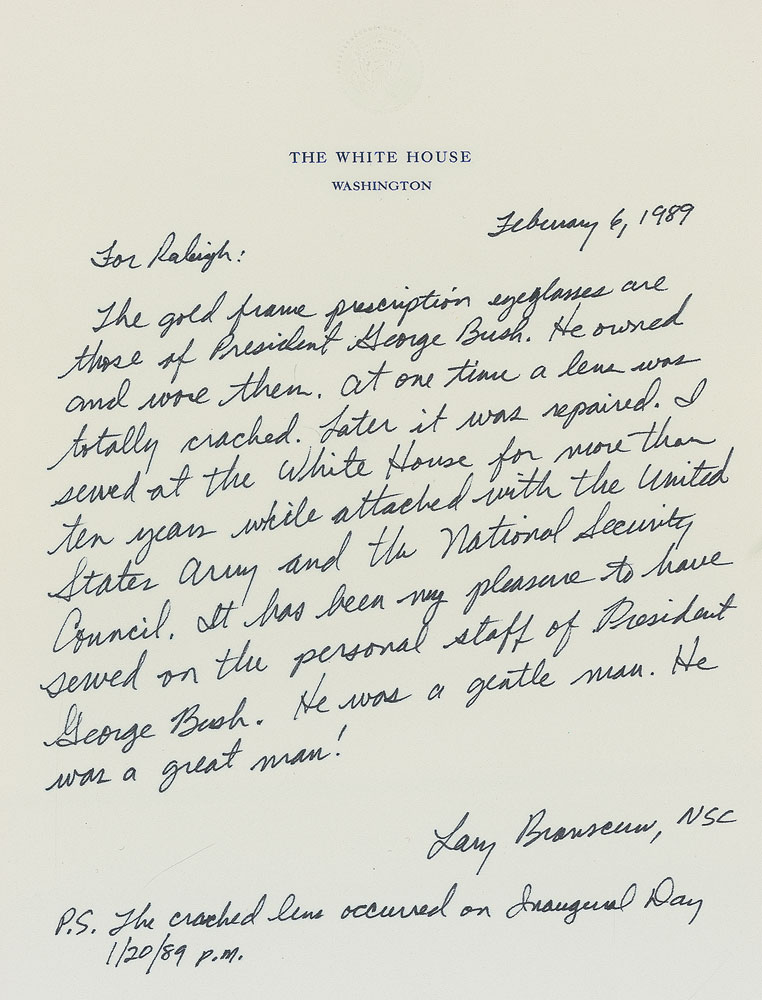 THE WHITE HOUSE
WASHINGTON
February 6, 1989
For Raleigh:
The gold frame prescription eyeglasses are
those of President George Bush. He owned
and wore them. At one time a lens was
totally crached. Later it was repaired. I
served at the White House for more than
ten years while attached with the United
States Army and the National Security
Council. It has been my pleasure to have
served on the personal staff of President
George Bush. He was a gentle man. He
was a great man!
Larry, NSC
P.S. The crached lens occurred on Inaugural Day
1/20/89 p.m.